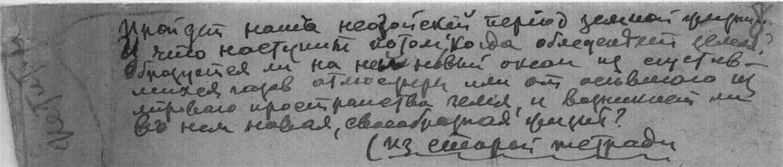 Пройдет нашъ неозойский период земной жизни.
И что наступит потом, когда обледенеет земля?
Образуется ли на ней новый океан из сгустив-
шихся газов атмосферы или от осевшего из
мирового пространства гелия, и возникнет ли
въ нем новая, своеобразная жизнь?
(из старой тетради